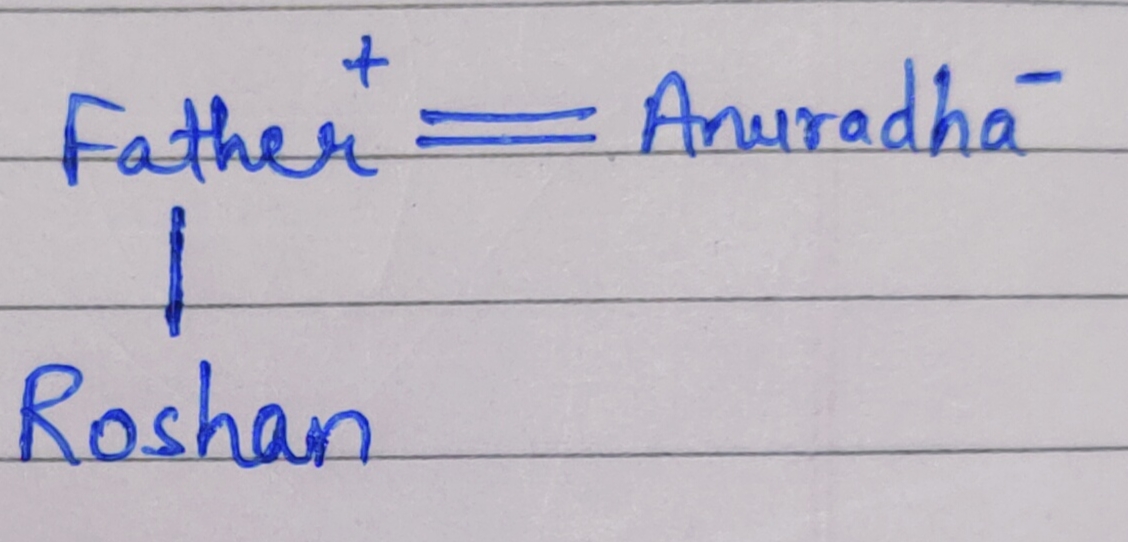 Father⁺ = Anuradha⁻
|
Roshan